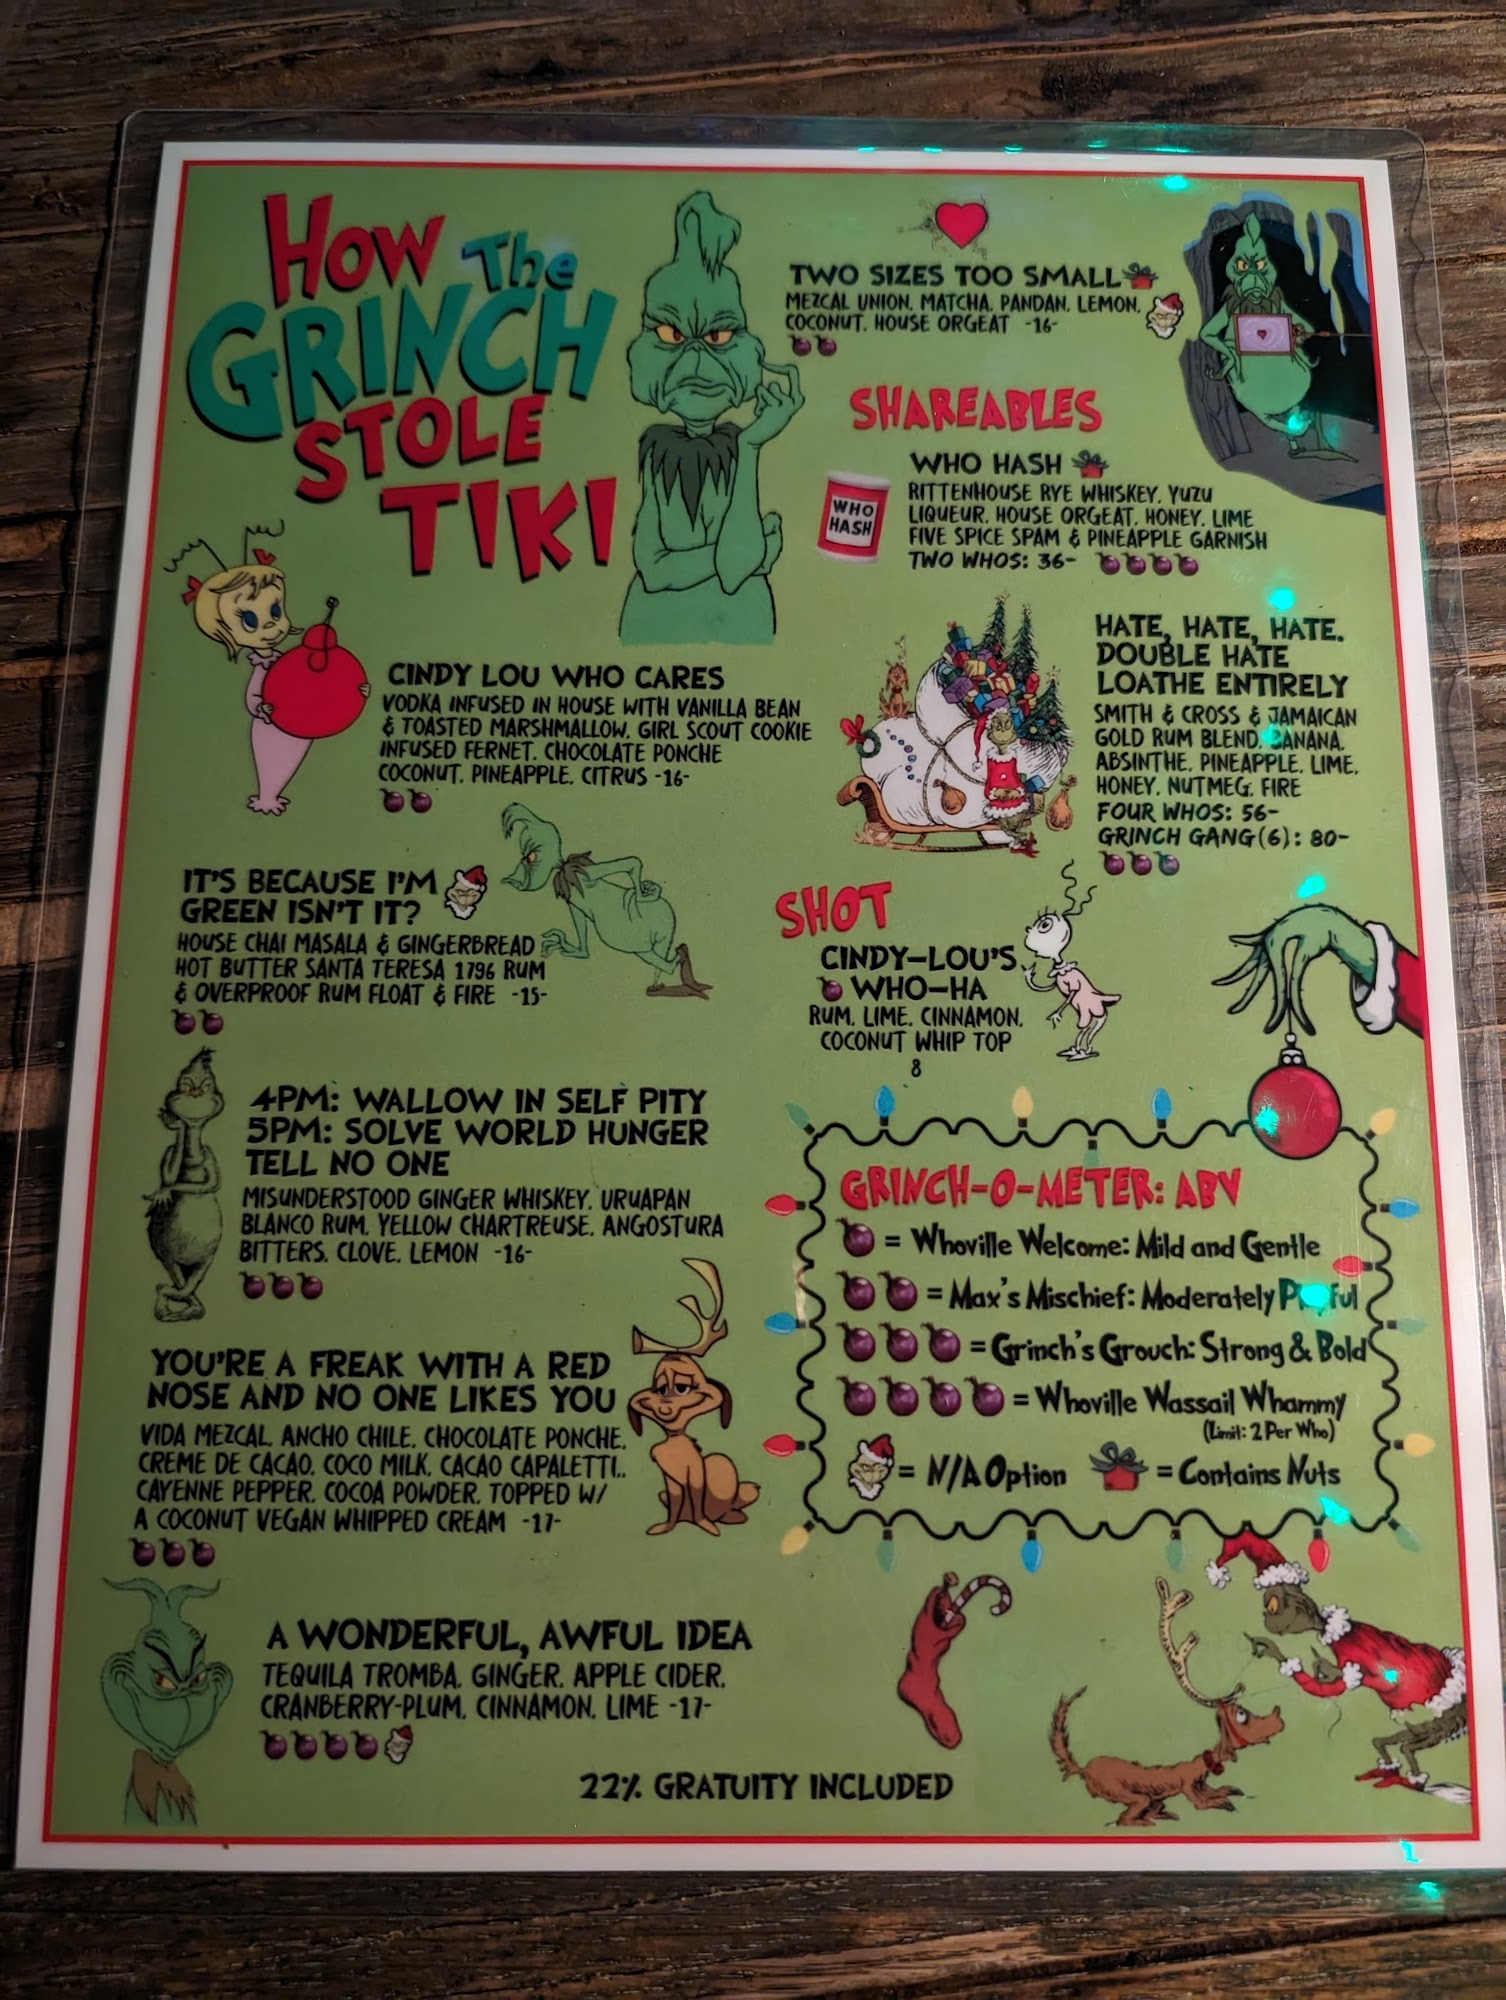 HOW THE
GRINCH
STOLE
TIKI
CINDY LOU WHO CARES
VODKA INFUSED IN HOUSE WITH VANILLA BEAN
& TOASTED MARSHMALLOW, GIRL SCOUT COOKIE
INFUSED FERNET, CHOCOLATE PONCHE
COCONUT, PINEAPPLE, CITRUS -16-
IT'S BECAUSE I'M
GREEN ISN'T IT?
HOUSE CHAI MASALA & GINGERBREAD
HOT BUTTER SANTA TERESA 1796 RUM
& OVERPROOF RUM FLOAT & FIRE -15-
4PM: WALLOW IN SELF PITY
5PM: SOLVE WORLD HUNGER
TELL NO ONE
MISUNDERSTOOD GINGER WHISKEY, URUAPAN
BLANCO RUM, YELLOW CHARTREUSE, ANGOSTURA
BITTERS, CLOVE, LEMON -16-
YOU'RE A FREAK WITH A RED
NOSE AND NO ONE LIKES YOU
VIDA MEZCAL, ANCHO CHILE, CHOCOLATE PONCHE,
CREME DE CACAO, COCO MILK, CACAO CAPALETTI,,
CAYENNE PEPPER, COCOA POWDER, TOPPED W/
A COCONUT VEGAN WHIPPED CREAM -17-
A WONDERFUL, AWFUL IDEA
TEQUILA TROMBA, GINGER, APPLE CIDER,
CRANBERRY-PLUM, CINNAMON, LIME -17-
TWO SIZES TOO SMALL
MEZCAL UNION, MATCHA, PANDAN, LEMON,
COCONUT, HOUSE ORGEAT -16-
SHAREABLES
WHO
HASH
WHO HASH
RITTENHOUSE RYE WHISKEY, YUZU
LIQUEUR, HOUSE ORGEAT, HONEY, LIME
FIVE SPICE SPAM & PINEAPPLE GARNISH
TWO WHOS: 36-
HATE, HATE, HATE.
DOUBLE HATE
LOATHE ENTIRELY
SMITH & CROSS & JAMAICAN
GOLD RUM BLEND, BANANA,
ABSINTHE, PINEAPPLE, LIME,
HONEY, NUTMEG, FIRE
FOUR WHOS: 56-
GRINCH GANG(6): 80-
SHOT
CINDY-LOU'S
WHO-HA
RUM, LIME, CINNAMON,
COCONUT WHIP TOP
8
GRINCH-O-METER: ABV
= Whoville Welcome: Mild and Gentle
= Max's Mischief: Moderately Playful
= Grinch's Grouch: Strong & Bold
= Whoville Wassail Whammy
(Limit: 2 Per Who)
= N/A Option = Contains Nuts
22% GRATUITY INCLUDED